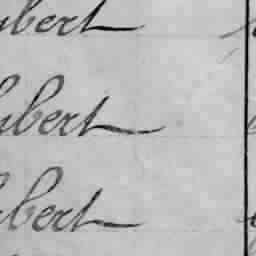 ubert
ubert
ubert